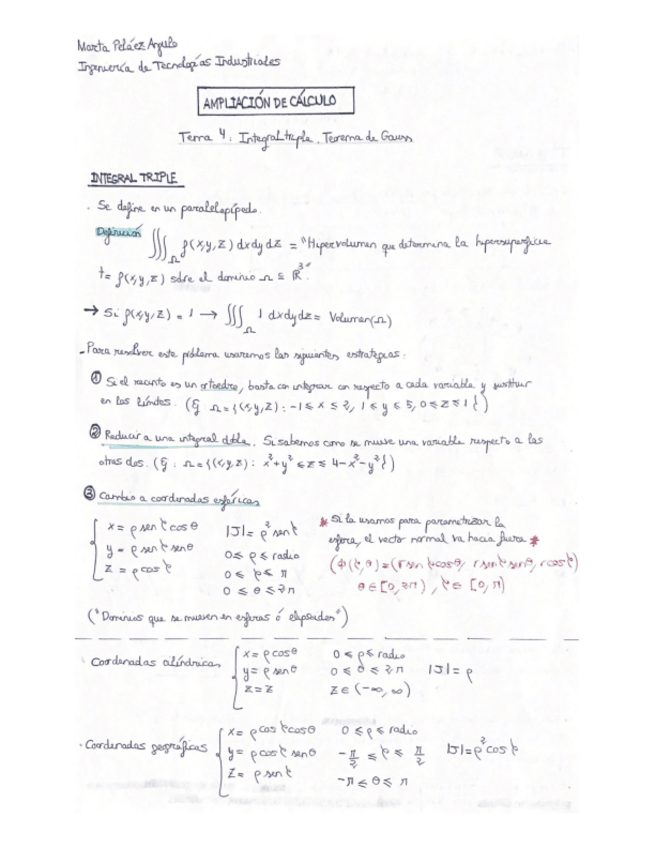 Marta Peláez Angulo
Ingeniería de Tecnologías Industriales
AMPLIACIÓN DE CÁLCULO
Tema 4: Integral triple. Teorema de Gauss
INTEGRAL TRIPLE
. Se define en un paralelepípedo.
Definición ∭_Ω f(x,y,z) dxdydz = "Hipervolumen que determina la hipersuperficie
t = f(x,y,z) sobre el dominio Ω ⊆ ℝ³"
→ Si f(x,y,z) = 1 → ∭_Ω 1 dxdydz = Volumen(Ω)
- Para resolver este problema usaremos las siguientes estrategias:
① Si el recinto es un ortoedro, basta con integrar con respecto a cada variable y sustituir
en los límites. (Ej Ω = {(x,y,z): -1 ≤ x ≤ 2, 1 ≤ y ≤ 5, 0 ≤ z ≤ 1})
② Reducir a una integral doble. Si sabemos como se mueve una variable respecto a las
otras dos. (Ej: Ω = {(x,y,z): x²+y² ≤ z ≤ 4-x²-y²})
③ Cambio a coordenadas esféricas
x = ρ sen φ cos θ |J| = ρ² sen φ
y = ρ sen φ sen θ 0 ≤ ρ ≤ radio
z = ρ cos φ 0 ≤ φ ≤ π
0 ≤ θ ≤ 2π
* Si la usamos para parametrizar la
esfera, el vector normal va hacia fuera *
(Φ(φ,θ) = (r sen φ cos θ, r sen φ sen θ, r cos φ)
θ ∈ [0, 2π), φ ∈ [0, π)
("Dominios que se mueven en esferas ó elipsoides")
Coordenadas cilíndricas
x = ρ cos θ 0 ≤ ρ ≤ radio
y = ρ sen θ 0 ≤ θ ≤ 2π |J| = ρ
z = z z ∈ (-∞, ∞)
. Coordenadas geográficas
x = ρ cos φ cos θ 0 ≤ ρ ≤ radio
y = ρ cos φ sen θ -π/2 ≤ φ ≤ π/2 |J| = ρ² cos φ
z = ρ sen φ -π ≤ θ ≤ π